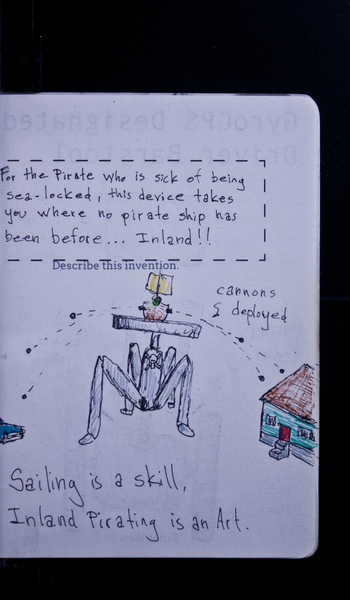 GyroGPS Designated
Driver Barstool
For the Pirate who is sick of being
sea-locked, this device takes
you where no pirate ship has
been before... Inland!!
Describe this invention.
cannons
& deployed
Sailing is a skill,
Inland Pirating is an Art.